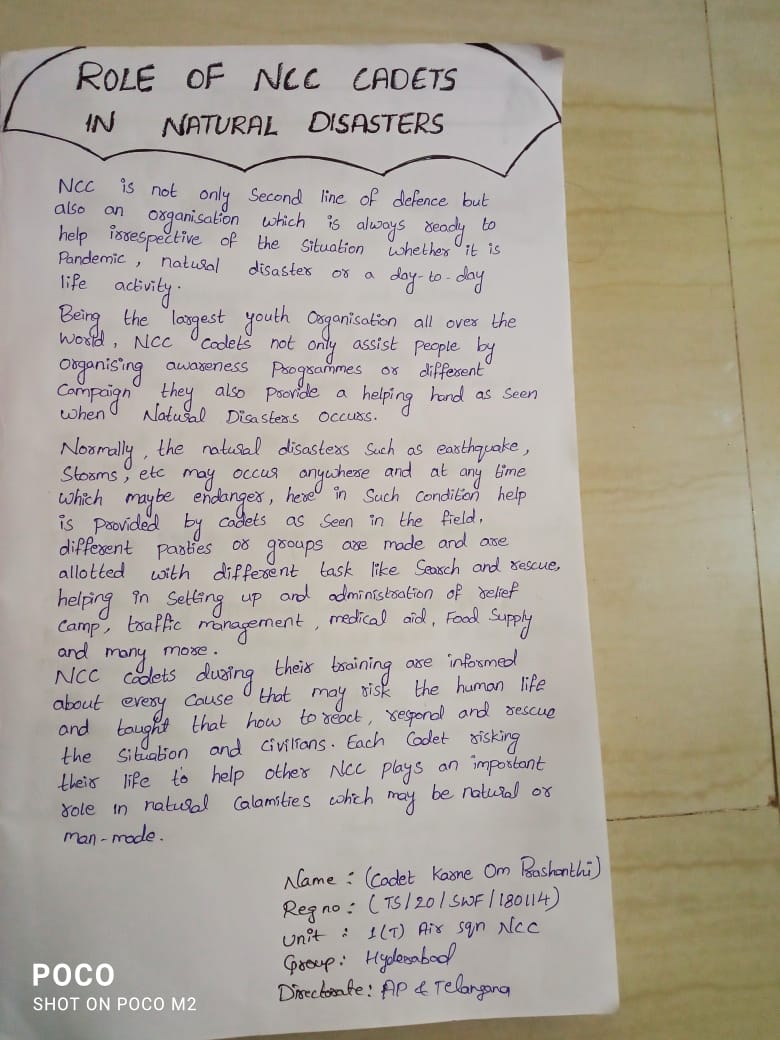 ROLE OF NCC CADETS
IN NATURAL DISASTERS
NCC is not only Second line of defence but
also an organisation which is always ready to
help irrespective of the Situation whether it is
Pandemic, natural disaster or a day-to-day
life activity.
Being the largest youth Organisation all over the
World, NCC Cadets not only assist people by
Organising awareness Programmes or different
Campaign they also Provide a helping hand as seen
when Natural Disasters occurs.
Normally, the natural disasters Such as earthquake,
Storms, etc may occur anywhere and at any time
which maybe endanger, here in Such condition help
is Provided by cadets as Seen in the field,
different Parties or groups are made and are
allotted with different task like Search and rescue,
helping in Setting up and administration of relief
Camp, traffic management, medical aid, Food Supply
and many more.
NCC Cadets during their training are informed
about every Cause that may risk the human life
and taught that how to react, respond and rescue
the Situation and civilians. Each Cadet risking
their life to help other NCC Plays an important
role in natural Calamities which may be natural or
man-made.
Name : (Cadet Karne Om Prashanthi)
Reg no : (TS/20/SWF/180114)
Unit : 1(T) Air sqn NCC
Group : Hyderabad
Directorate : AP & Telangana
POCO
SHOT ON POCO M2